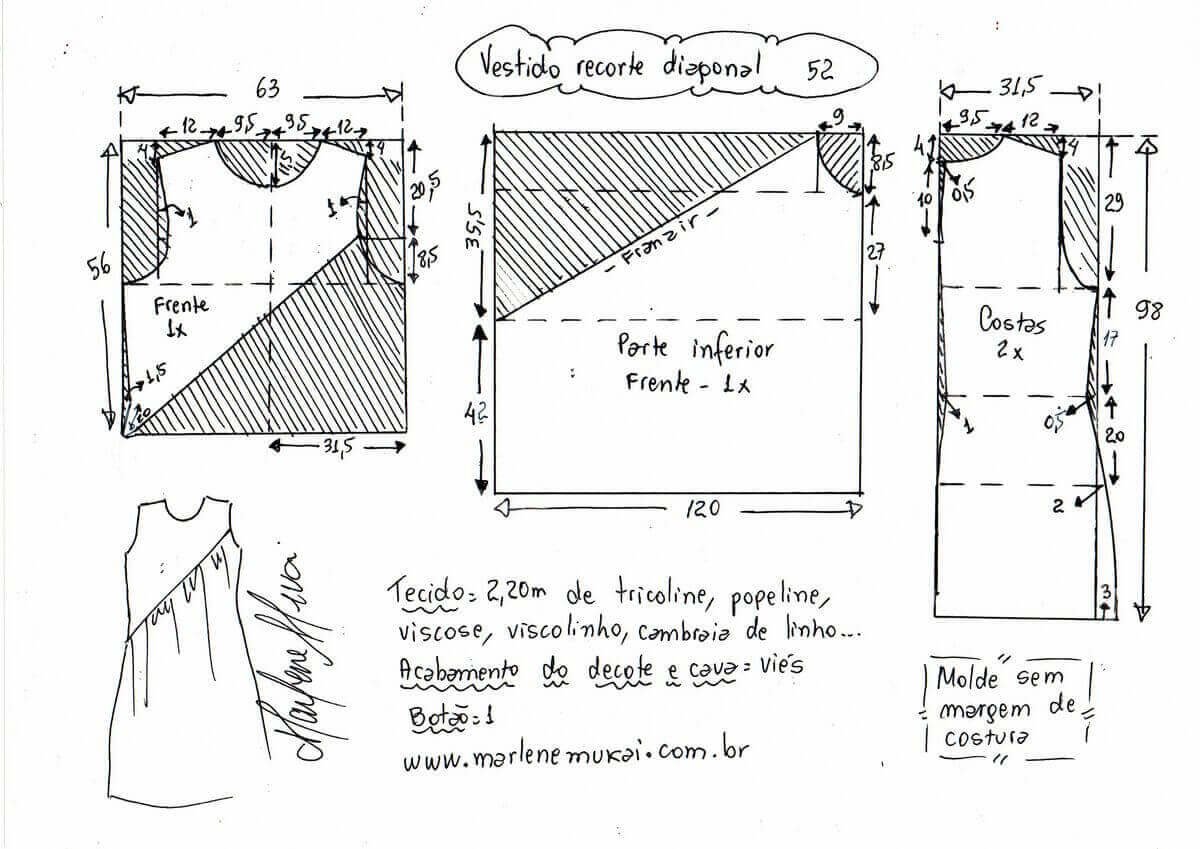 Vestido recorte diagonal 52
63
12 9,5 9,5 12
4 11,5 4
1 1
20,5
8,5
56
Frente
1x
1,5
20
31,5
9
8,5
35,5
27
- Franzir -
Parte inferior
Frente - 1x
42
120
31,5
9,5 12
4 4
0,5
10
29
98
Costas
2x
17
1
0,5
20
2
3
Tecido = 2,20m de tricoline, popeline,
viscose, viscolinho, cambraia de linho...
Acabamento do decote e cava = viés
Botão = 1
www.marlenemukai.com.br
Molde sem
margem de
costura